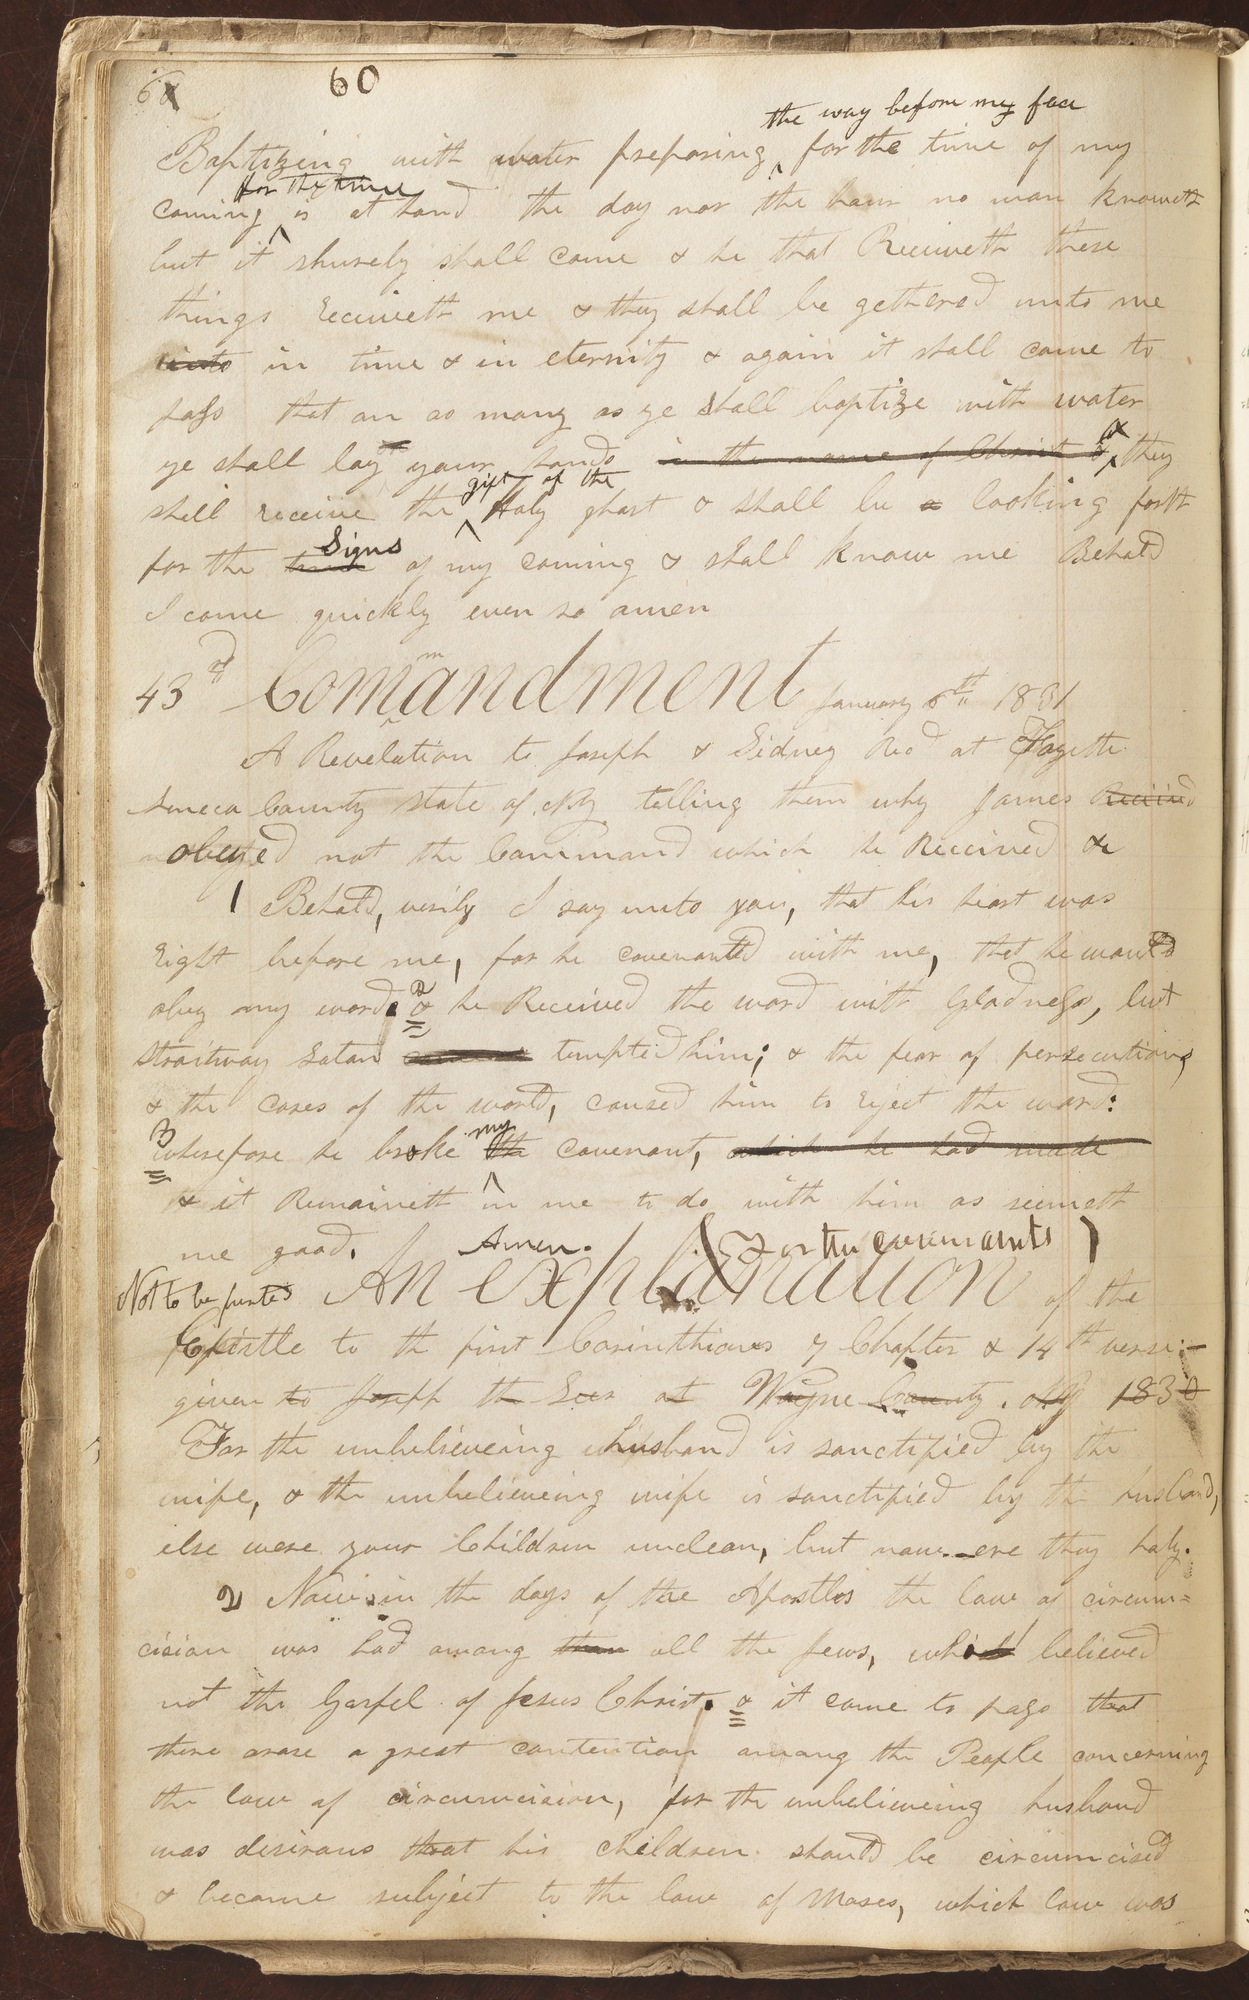 60 60
the way before my face
Baptizing with water preparing for the time of my
for the time
coming is at hand the day nor the hour no man knoweth
but it shurely shall come & he that Receiveth these
things receiveth me & they shall be gethered unto me
in time & in eternity & again it shall come to
pass that an as many as ye shall baptize with water
ye shall lay your hands in the name of Christ & they
gift of the
shall receive the Holy ghost & shall be a looking forth
Signs
for the time of my coming & shall know me Behold
I come quickly even so amen
43rd Commandment January 5th 1831
A Revelation to Joseph & Sidney Recd at Fayette
Seneca County State of NY. telling them why James Received
obeyed not the Command which he Received &c
1 Behold, verily I say unto you, that his heart was
right before me, for he covenanted with me, that he would
obey my word. 2 & he Received the word with Gladness, but
straitway Satan tempted him; & the fear of persecution,
& the cares of the world, caused him to reject the word:
my
3 wherefore he broke the covenant, which he had made
& it Remaineth in me to do with him as seemeth
me good. Amen. (For the covenants)
Not to be printed An explanation of the
Epistle to the first Corinthians 7 Chapter & 14th verse:—
given to Joseph the Seer at Wayne County. NY 1830
For the unbelieveing husband is sanctified by the
wife, & the unbelieveing wife is sanctified by the husband,
else were your Children unclean, but now are they holy.
2 Now in the days of the Apostles the law of circum=
cision was had among all the Jews, which believed
not the Gospel of Jesus Christ. & it came to pass that
there arose a great contention among the People concerning
the law of circumcision, for the unbelieveing husband
was desirous that his children should be circumcised
& become subject to the law of Moses, which law was